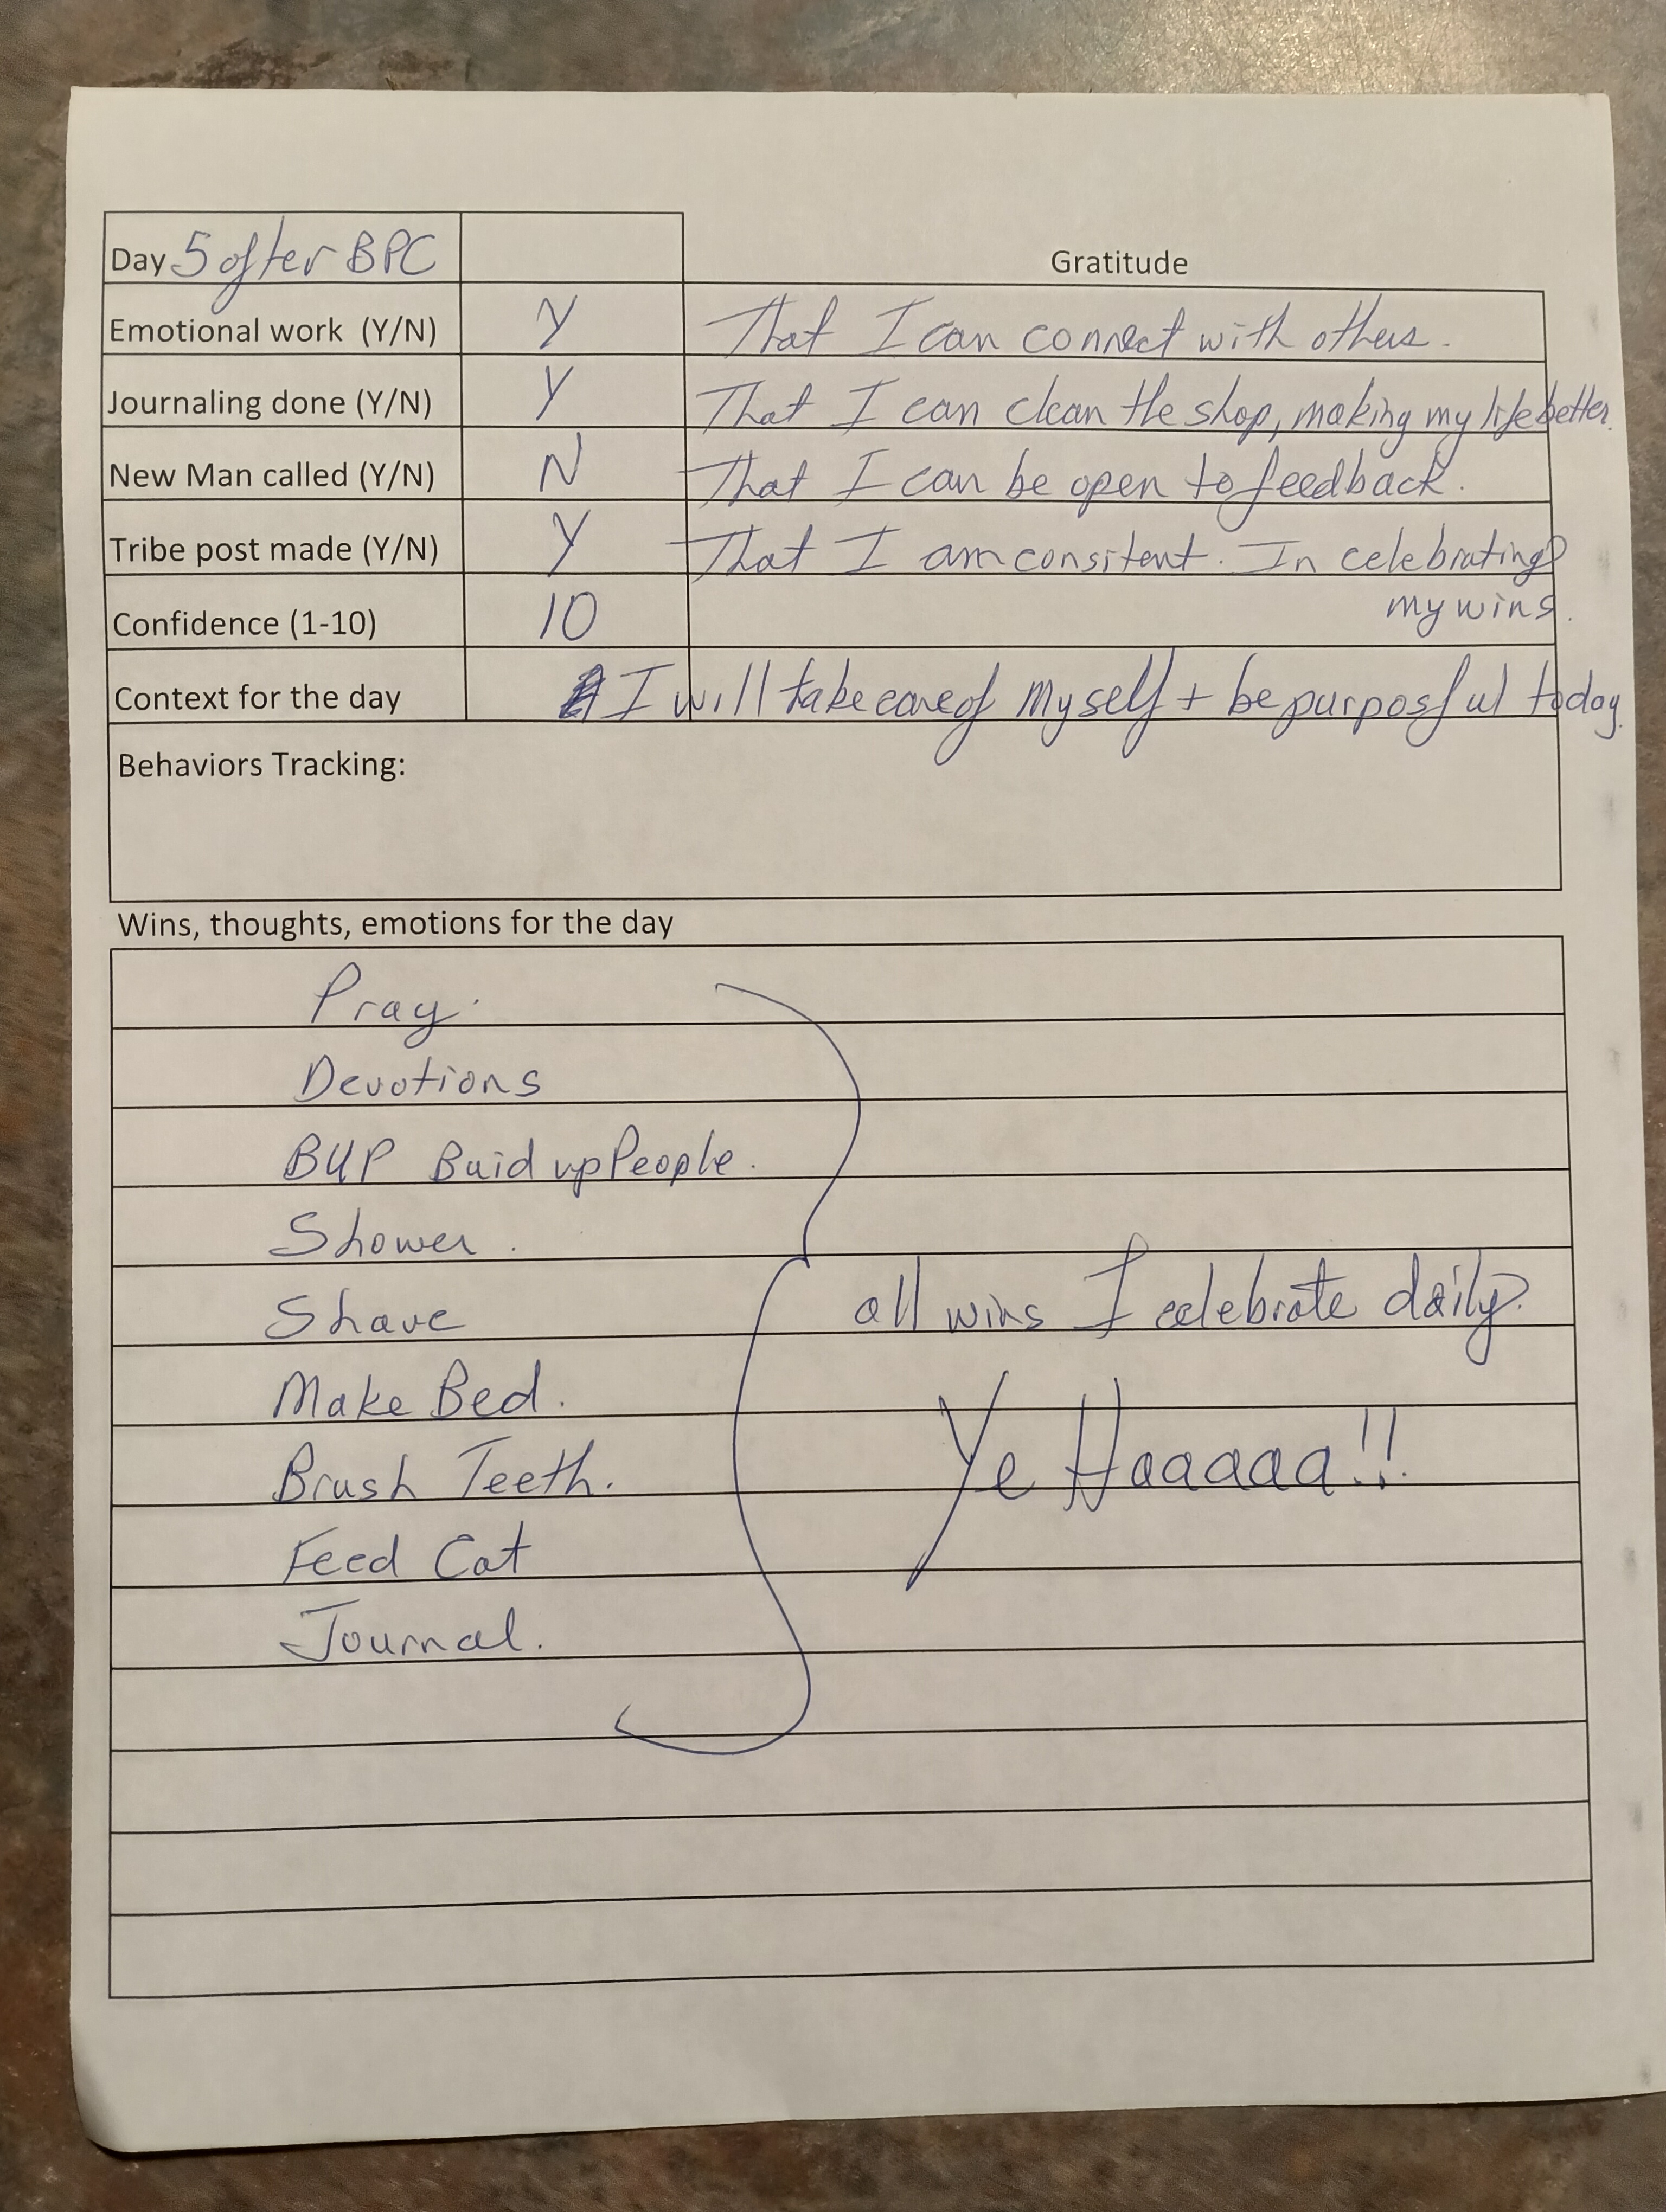 Day 5 after BPC
Gratitude
Emotional work (Y/N) Y That I can connect with others.
Journaling done (Y/N) Y That I can clean the shop, making my life better.
New Man called (Y/N) N That I can be open to feedback.
Tribe post made (Y/N) Y That I am consitent. In celebrating
Confidence (1-10) 10 my wins.
Context for the day I will take care of myself + be purposful today.
Behaviors Tracking:
Wins, thoughts, emotions for the day
Pray.
Devotions
BUP Buid up People.
Shower.
Shave
all wins I celebrate daily.
Make Bed.
Brush Teeth.
Ye Haaaaa!!
Feed Cat
Journal.